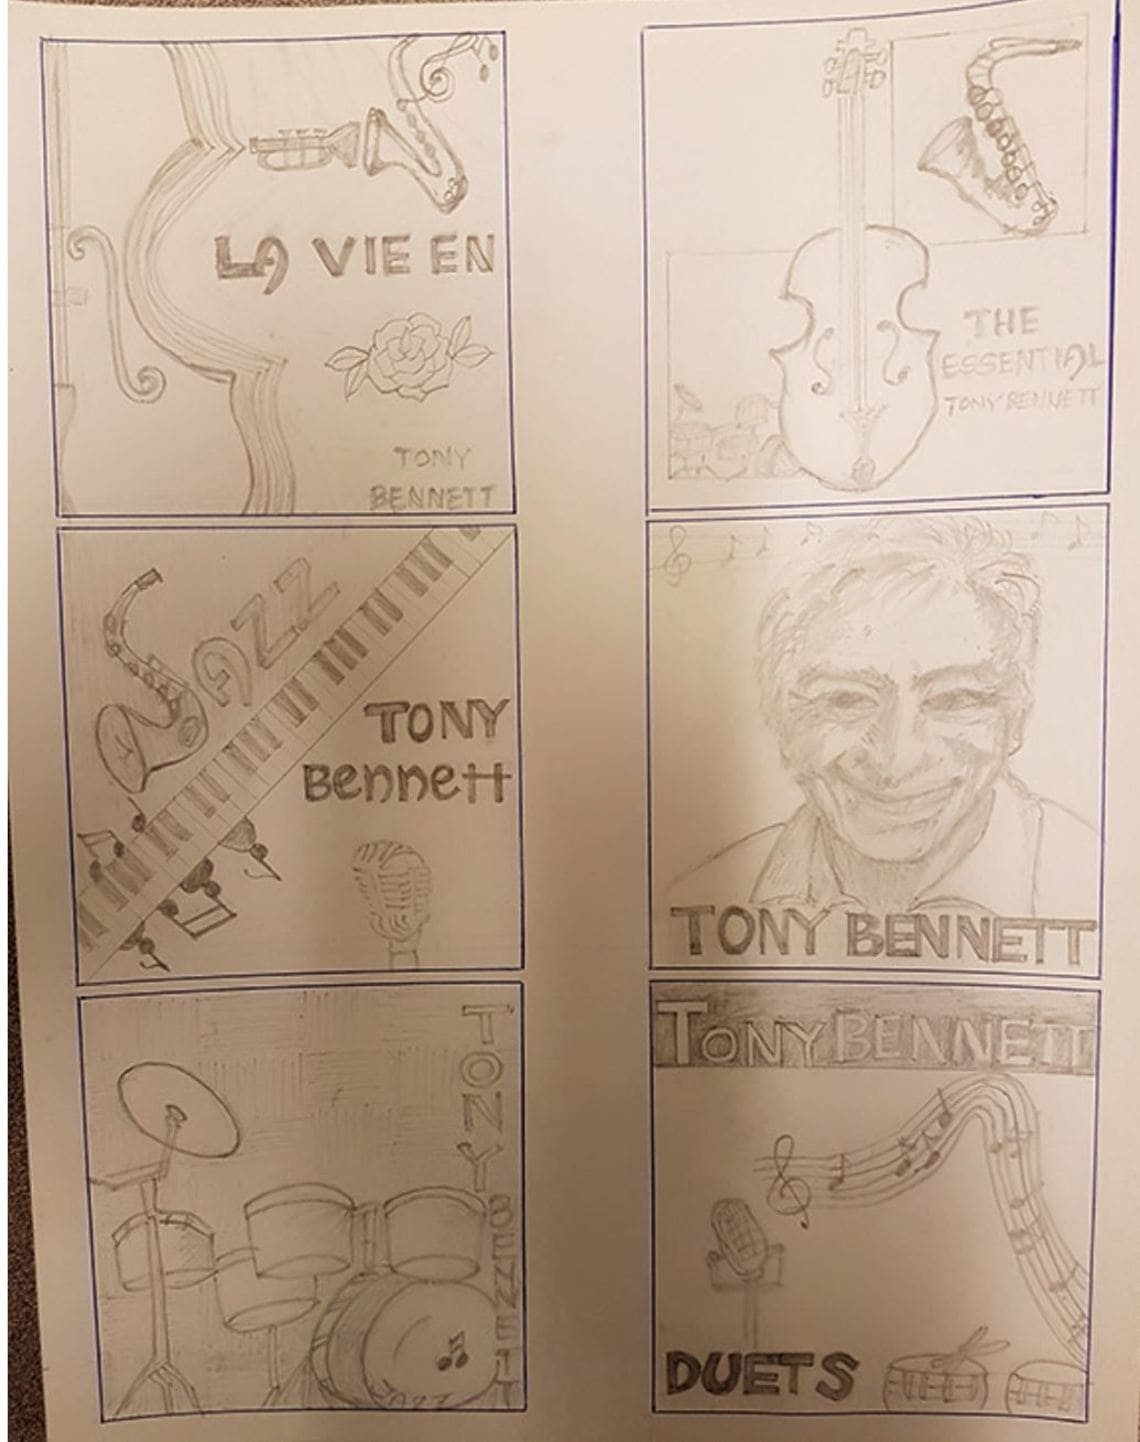 LA VIE EN
TONY
BENNETT
THE
ESSENTIAL
TONY BENNETT
JAZZ
TONY
Bennett
TONY BENNETT
TONY BENNETT
JAZZ
TONY BENNETT
DUETS